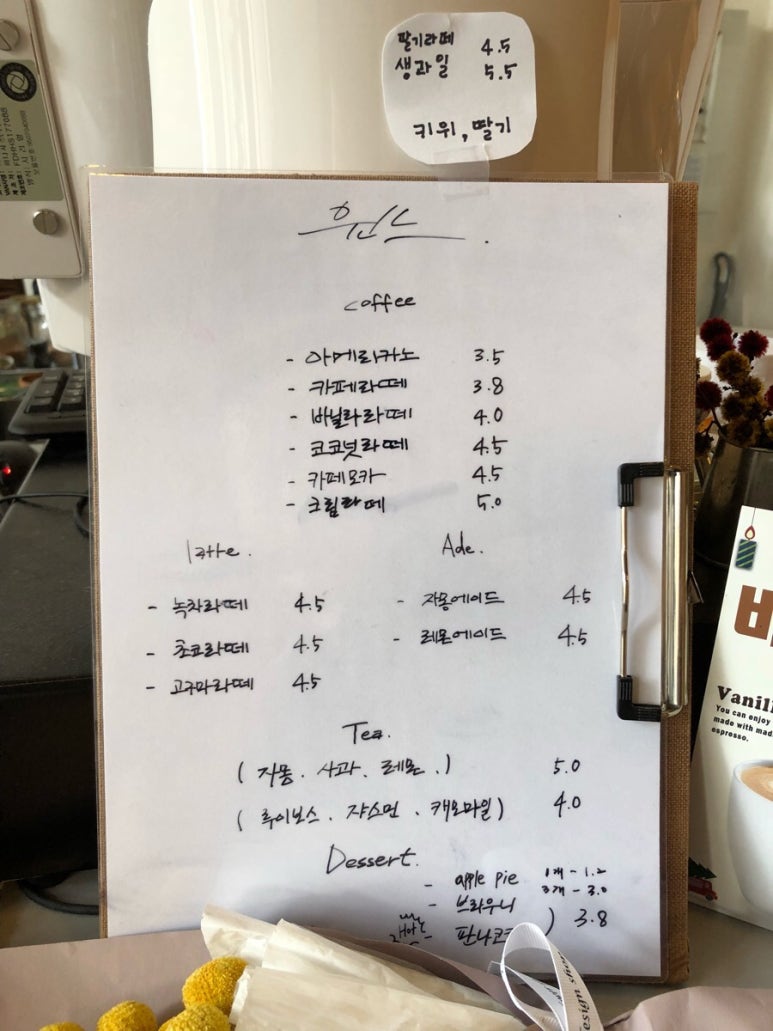 딸기라떼 4.5
생과일 5.5
키위, 딸기
coffee
- 아메리카노 3.5
- 카페라떼 3.8
- 바닐라라떼 4.0
- 코코넛라떼 4.5
- 카페모카 4.5
- 크림라떼 5.0
latte.
- 녹차라떼 4.5
- 초코라떼 4.5
- 고구마라떼 4.5
Ade.
- 자몽에이드 4.5
- 레몬에이드 4.5
Tea.
( 자몽 . 사과 . 레몬 . ) 5.0
( 루이보스 . 쟈스민 . 캐모마일 ) 4.0
Dessert.
- apple pie 1개 - 1.2
3개 - 3.0
- 브라우니
- 판나코 ) 3.8
Vanil
You can enjoy
made with mad
espresso.